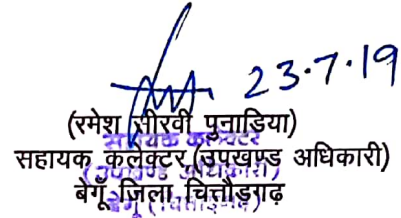 23.7.19
(रमेश सीरवी पुनाडिया)
सहायक कलेक्टर
सहायक कलेक्टर (उपखण्ड अधिकारी)
(उपखण्ड अधिकारी)
बेगूँ जिला चित्तौड़गढ़
बेगूं (चित्तौड़गढ़)